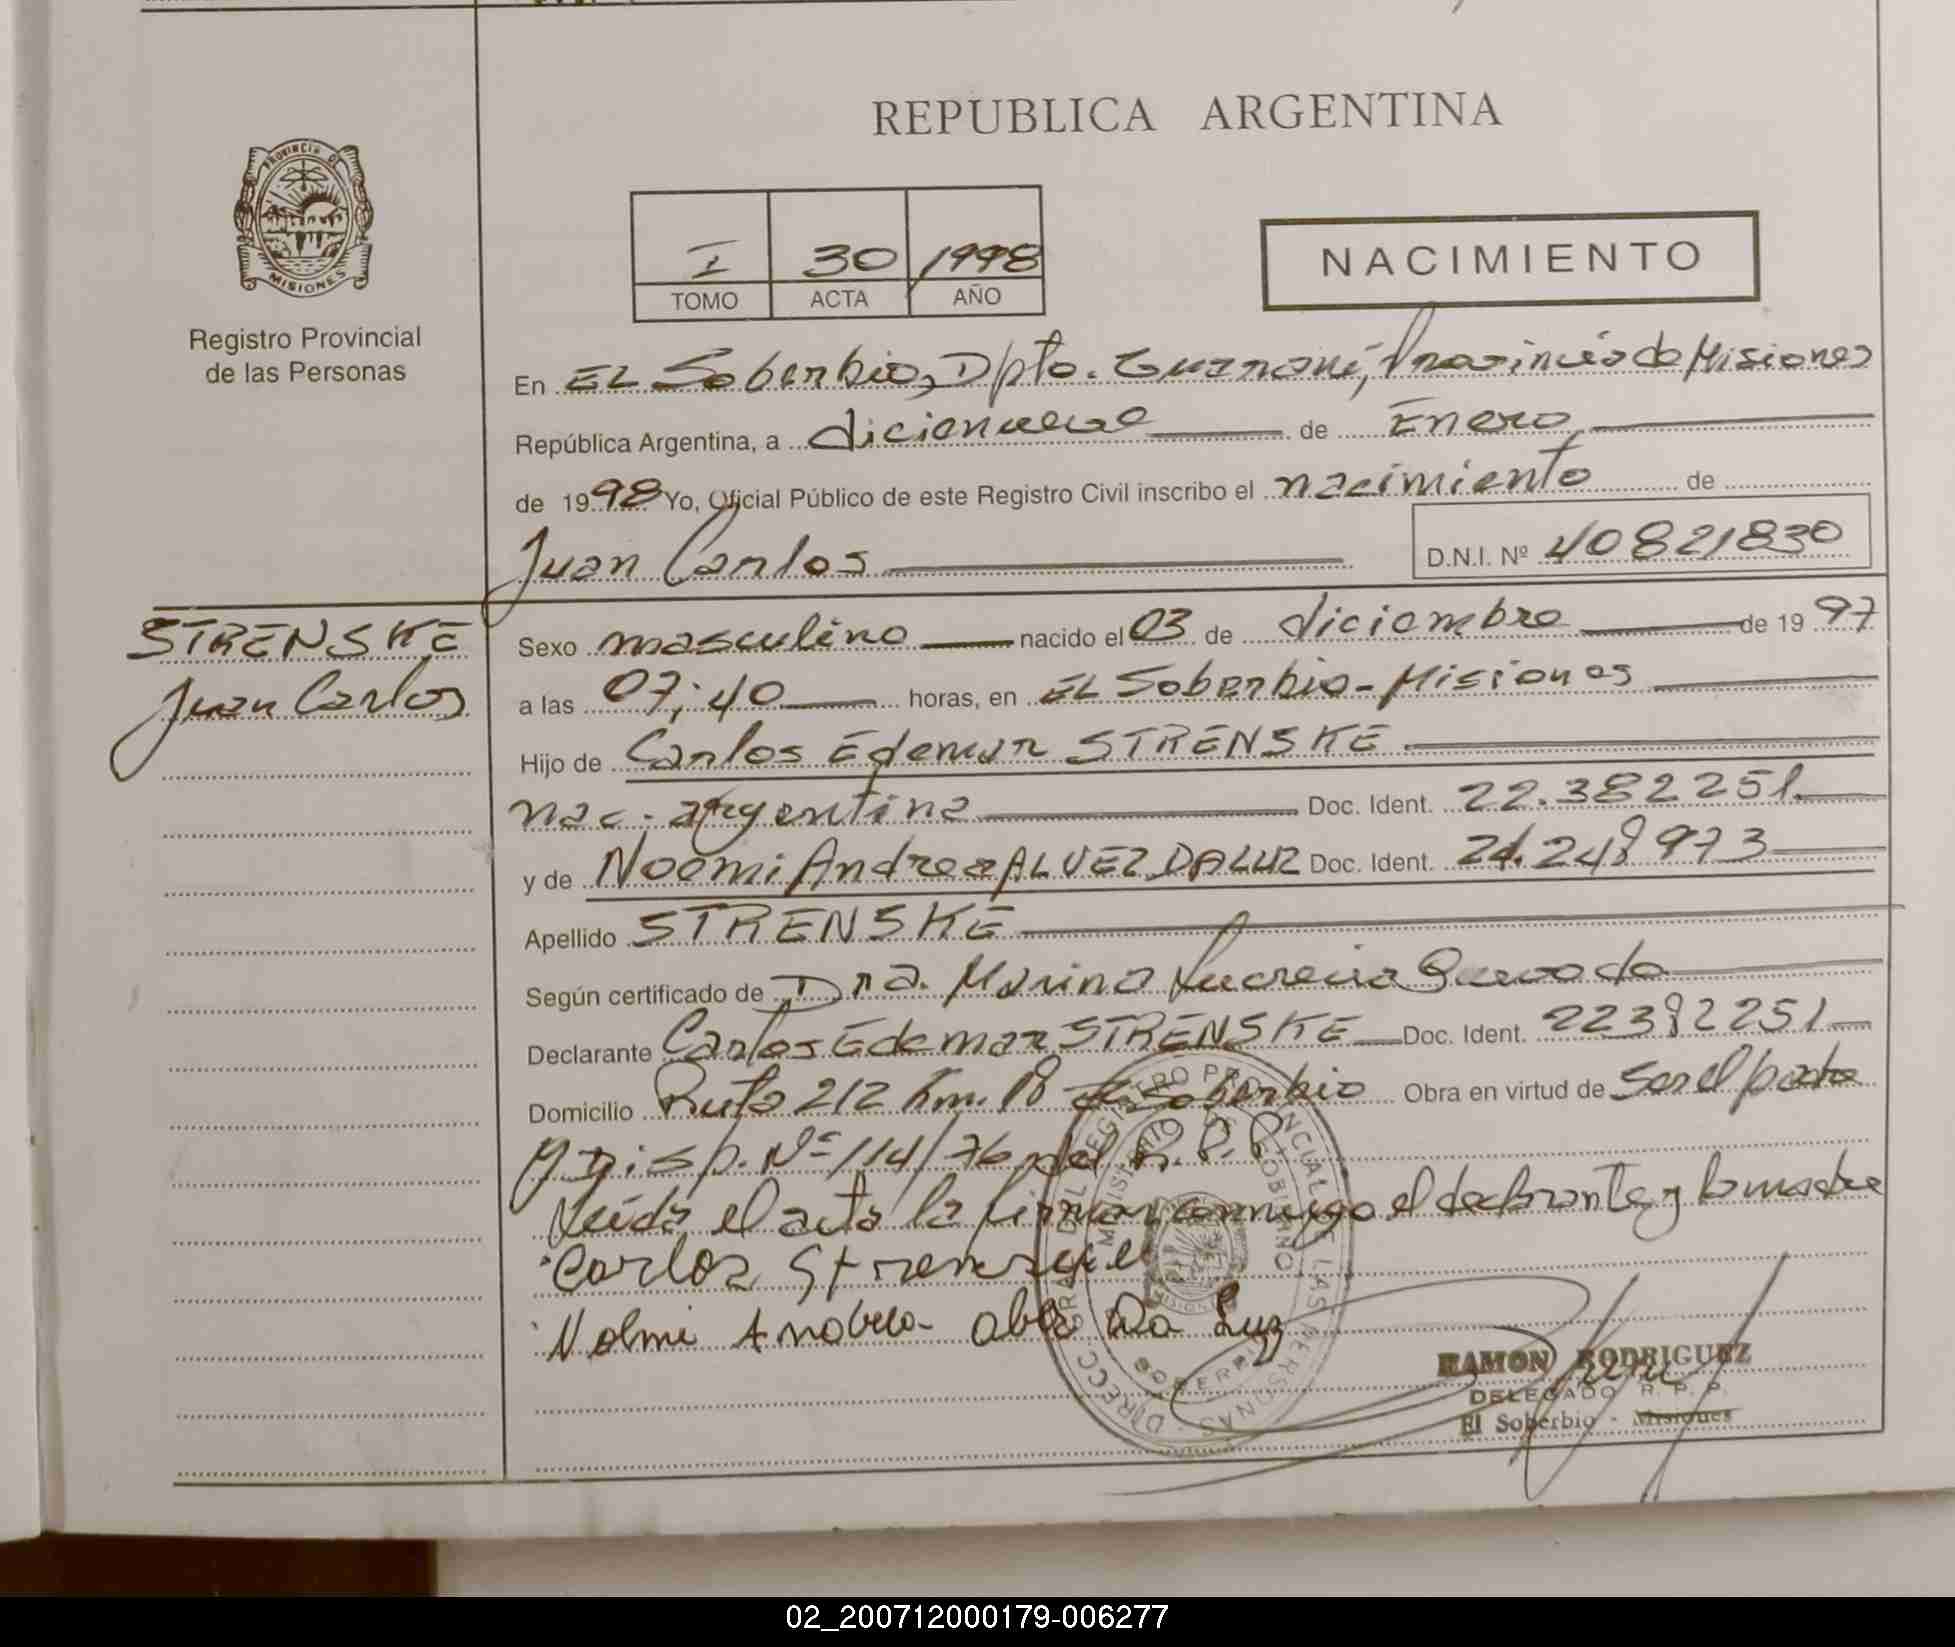 REPUBLICA ARGENTINA
PROVINCIA DE
MISIONES
Registro Provincial
de las Personas
I 30 1998
TOMO ACTA AÑO
NACIMIENTO
En EL Soberbio, Dpto. Guaraní, Provincia de Misiones
República Argentina, a diecinueve de Enero
de 1998 Yo, Oficial Público de este Registro Civil inscribo el nacimiento de
Juan Carlos D.N.I. Nº 40821830
STRENSKE
Juan Carlos
Sexo masculino nacido el 03 de diciembre de 1997
a las 07:40 horas, en EL Soberbio - Misiones
Hijo de Carlos Edemar STRENSKE
nac. argentina Doc. Ident. 22.382251
y de Noemi Andrea ALVEZ DA LUZ Doc. Ident. 24.248973
Apellido STRENSKE
Según certificado de Dra. Marina Lucrecia Quevedo
Declarante Carlos Edemar STRENSKE Doc. Ident. 22382251
Domicilio Ruta 212 Km. 18 El Soberbio Obra en virtud de Ser el padre
y Disp. Nº 114/76 del R.P.P.
Leída el acta la firman conmigo el declarante y la madre
Carlos
Da Luz
DIRECC. GRAL. DEL REGISTRO PROVINCIAL DE LAS PERSONAS
MINISTERIO DE GOBIERNO
MISIONES
SOBERBIO
RAMON RODRIGUEZ
DELEGADO R. P. P.
El Soberbio - Misiones
02_200712000179-006277